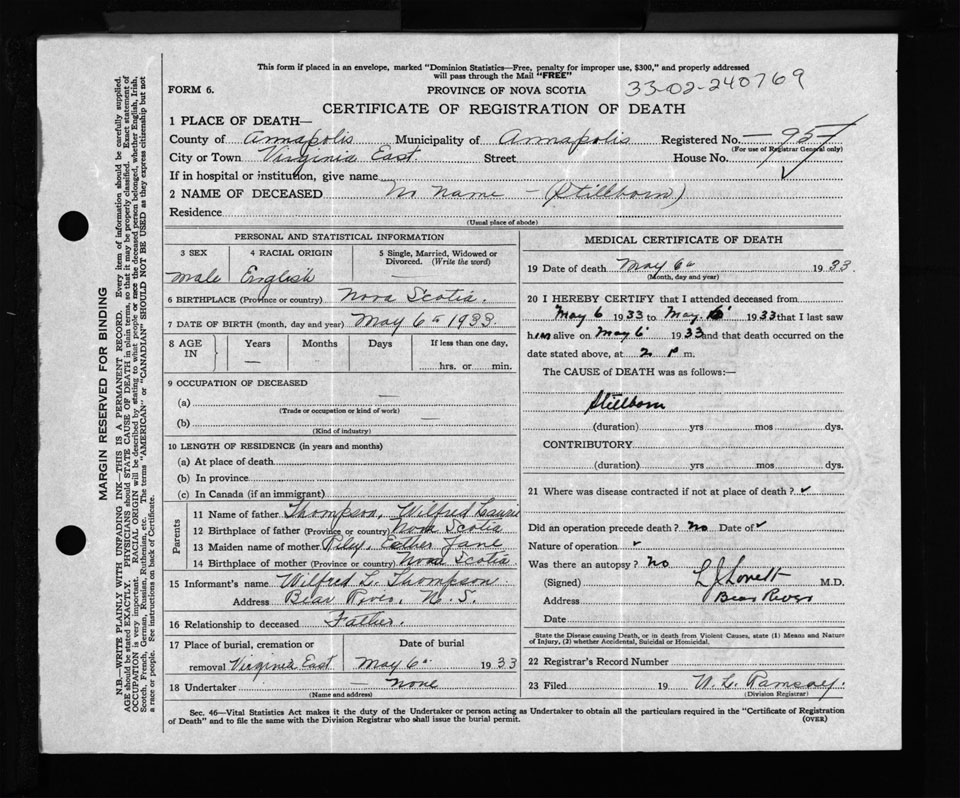 This form if placed in an envelope, marked "Dominion Statistics—Free, penalty for improper use, $300," and properly addressed
will pass through the Mail "FREE"
FORM 6. PROVINCE OF NOVA SCOTIA 33-02-240769
CERTIFICATE OF REGISTRATION OF DEATH
1 PLACE OF DEATH—
County of Annapolis Municipality of Annapolis Registered No. 95
(For use of Registrar General only)
City or Town Virginia East Street House No.
If in hospital or institution, give name
2 NAME OF DECEASED No name - (Stillborn)
Residence
(Usual place of abode)
PERSONAL AND STATISTICAL INFORMATION
3 SEX 4 RACIAL ORIGIN 5 Single, Married, Widowed or
Divorced. (Write the word)
male English
6 BIRTHPLACE (Province or country) Nova Scotia.
7 DATE OF BIRTH (month, day and year) May 6th 1933.
8 AGE Years Months Days If less than one day,
IN — hrs. or min.
9 OCCUPATION OF DECEASED
(a) —
(Trade or occupation or kind of work)
(b) —
(Kind of industry)
10 LENGTH OF RESIDENCE (in years and months)
(a) At place of death
(b) In province
(c) In Canada (if an immigrant)
Parents
11 Name of father Thompson, Wilfred Laurie
12 Birthplace of father (Province or country) Nova Scotia
13 Maiden name of mother Riley, Esther Jane
14 Birthplace of mother (Province or country) Nova Scotia
15 Informant's name Wilfred L. Thompson.
Address Bear River, N. S.
16 Relationship to deceased Father.
17 Place of burial, cremation or Date of burial
removal Virginia East May 6th 1933
18 Undertaker — none
(Name and address)
MEDICAL CERTIFICATE OF DEATH
19 Date of death May 6th 1933.
(Month, day and year)
20 I HEREBY CERTIFY that I attended deceased from
May 6 1933 to May 6 1933 that I last saw
him alive on May 6 1933 and that death occurred on the
date stated above, at 2 P m.
The CAUSE of DEATH was as follows:—
Stillborn
(duration) yrs mos dys.
CONTRIBUTORY
(duration) yrs mos dys.
21 Where was disease contracted if not at place of death? ✓
Did an operation precede death? No Date of ✓
Nature of operation ✓
Was there an autopsy? No
(Signed) L J Lovett M.D.
Address Bear River
Date
State the Disease causing Death, or in death from Violent Causes, state (1) Means and Nature
of Injury, (2) whether Accidental, Suicidal or Homicidal.
22 Registrar's Record Number
23 Filed 19 W. L. Ramsay.
(Division Registrar)
Sec. 46—Vital Statistics Act makes it the duty of the Undertaker or person acting as Undertaker to obtain all the particulars required in the "Certificate of Registration
of Death" and to file the same with the Division Registrar who shall issue the burial permit. (OVER)
MARGIN RESERVED FOR BINDING
N.B.—WRITE PLAINLY WITH UNFADING INK—THIS IS A PERMANENT RECORD. Every item of information should be carefully supplied.
AGE should be stated EXACTLY. PHYSICIANS should STATE CAUSE OF DEATH in plain terms, so that it may be properly classified. Exact statement of
OCCUPATION is very important. RACIAL ORIGIN will be described by stating to what people or race the deceased person belonged, whether English, Irish,
Scotch, French, German, Russian, Ruthenian, etc. The terms "AMERICAN" or "CANADIAN" SHOULD NOT BE USED as they express citizenship but not
a race or people. See instructions on back of Certificate.